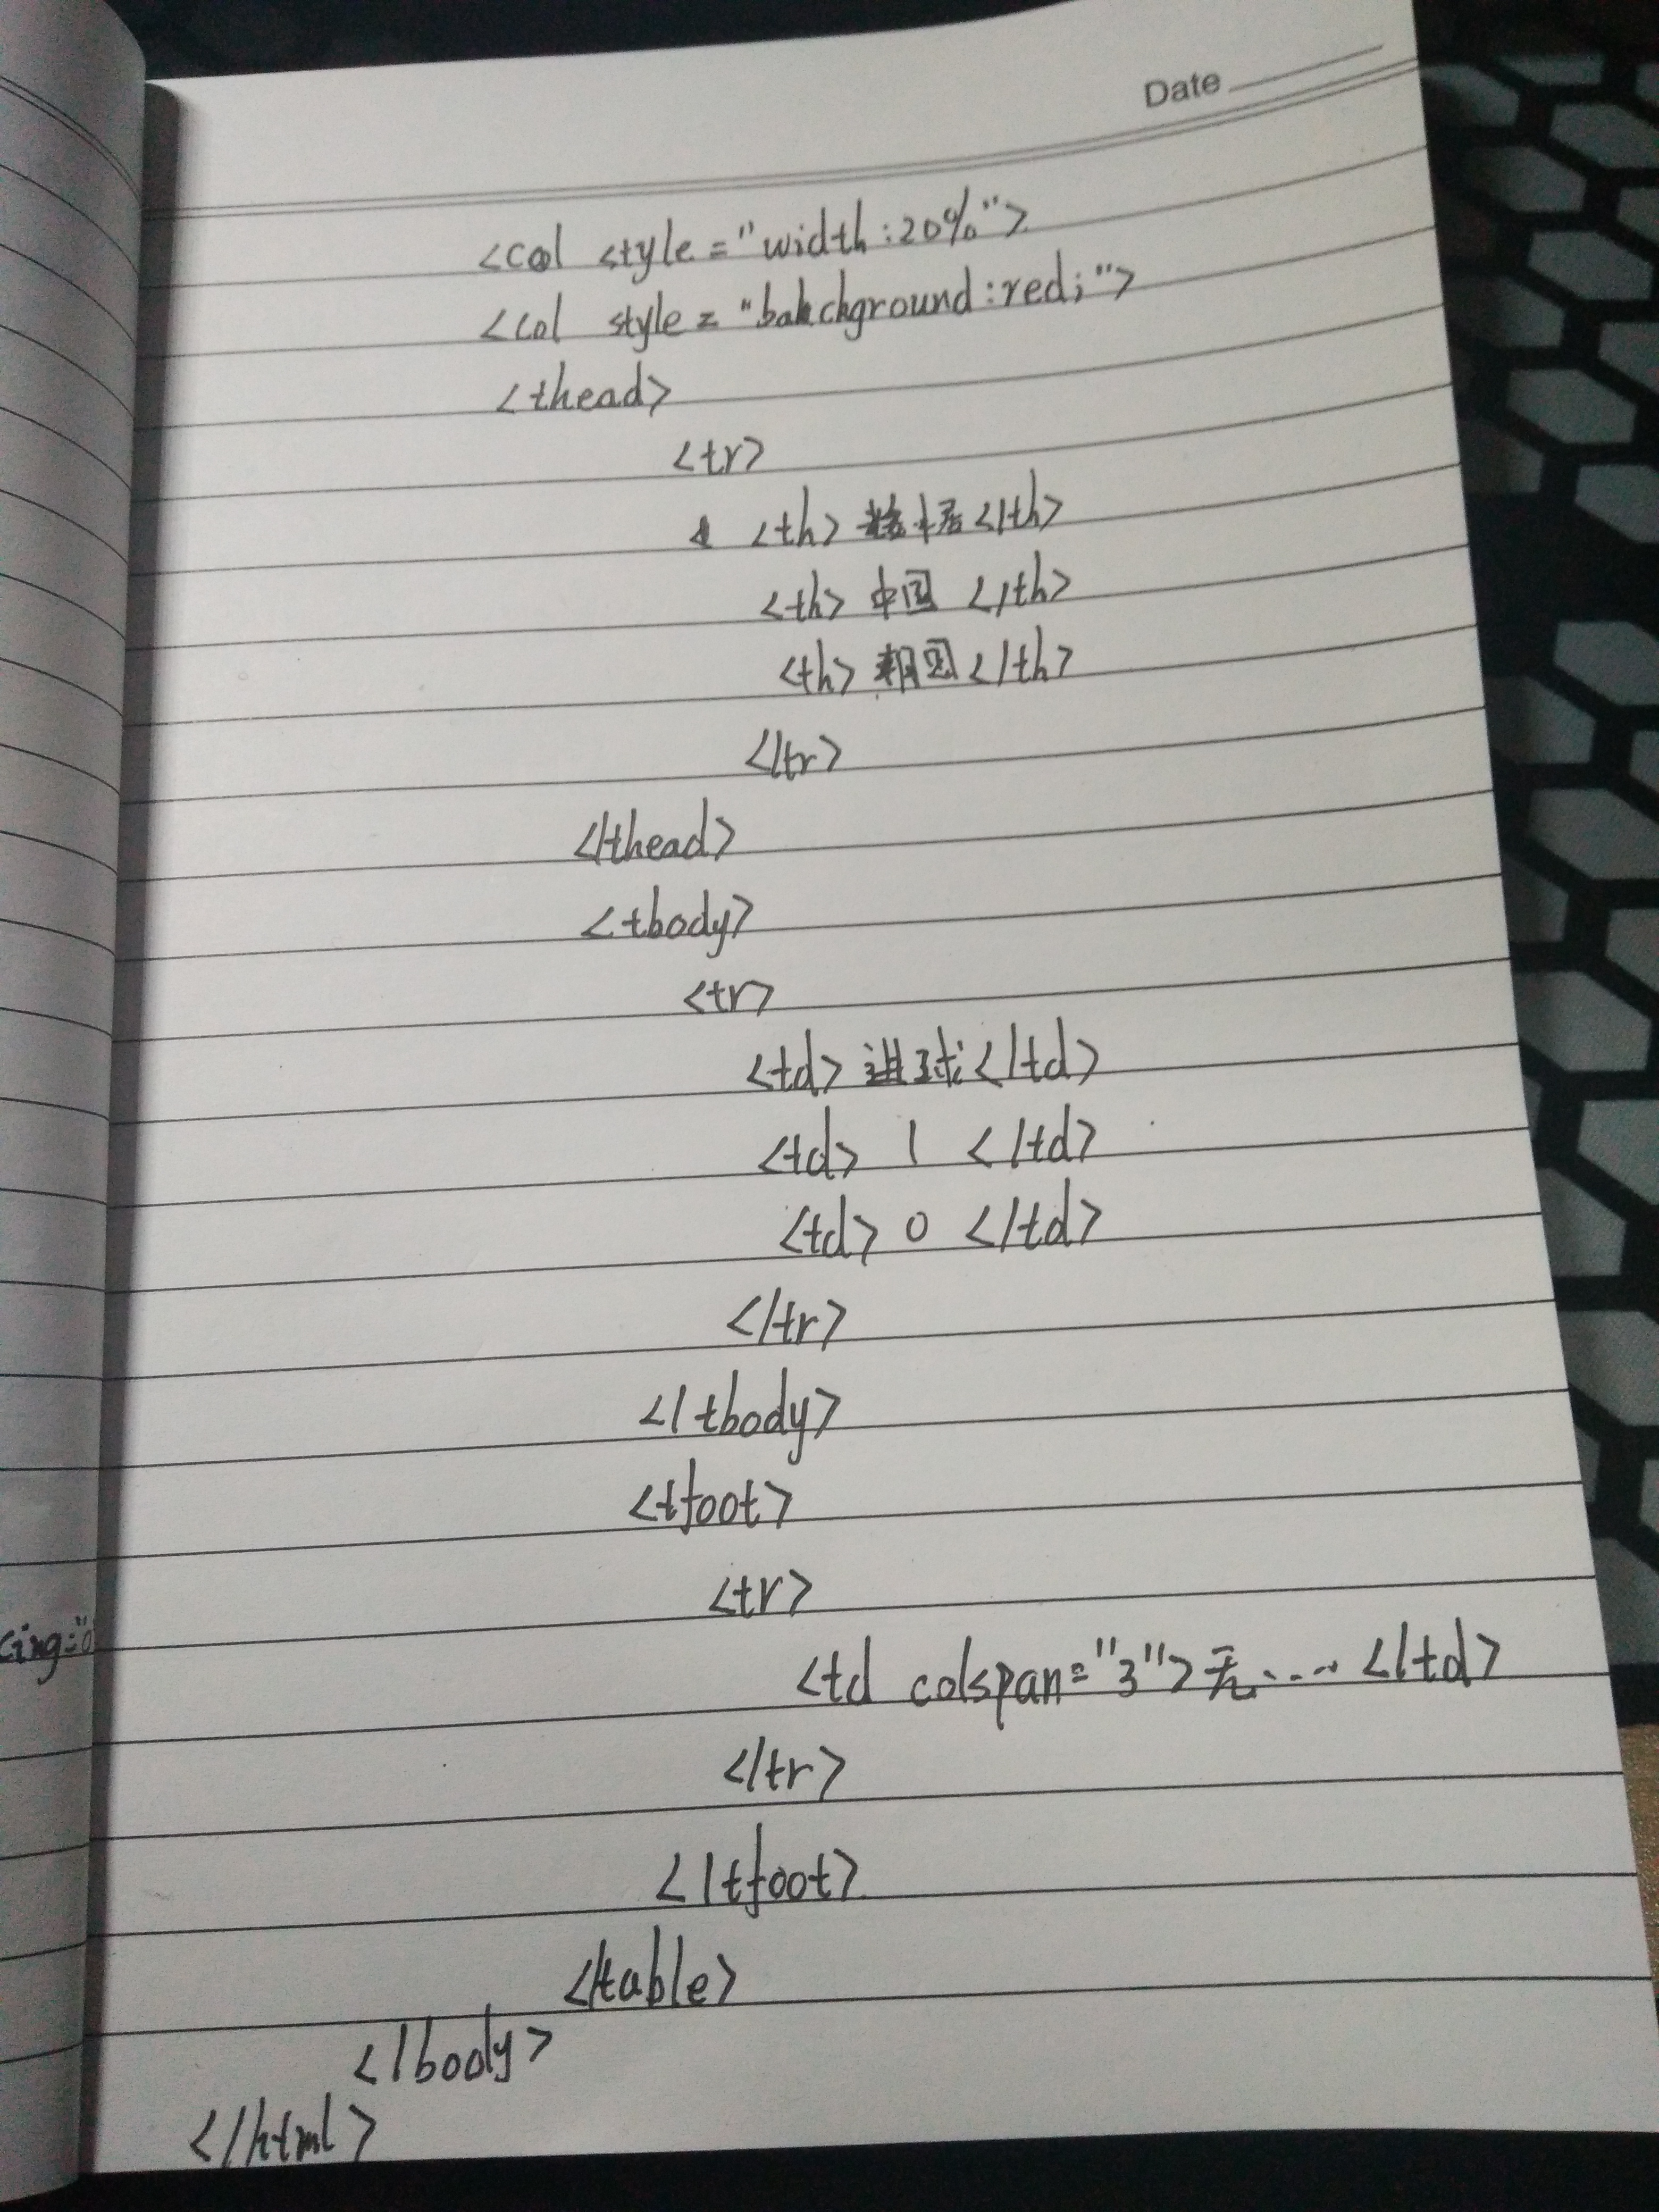 Date
<col style="width:20%">
<col style="bakckground:red;">
<thead>
<tr>
<th> </th>
<th>中国</th>
<th> </th>
</tr>
</thead>
<tbody>
<tr>
<td>进球</td>
<td>1</td>
<td>0</td>
</tr>
</tbody>
<tfoot>
<tr>
cing="0
<td colspan="3">无....</td>
</tr>
</tfoot>
</table>
</body>
</html>